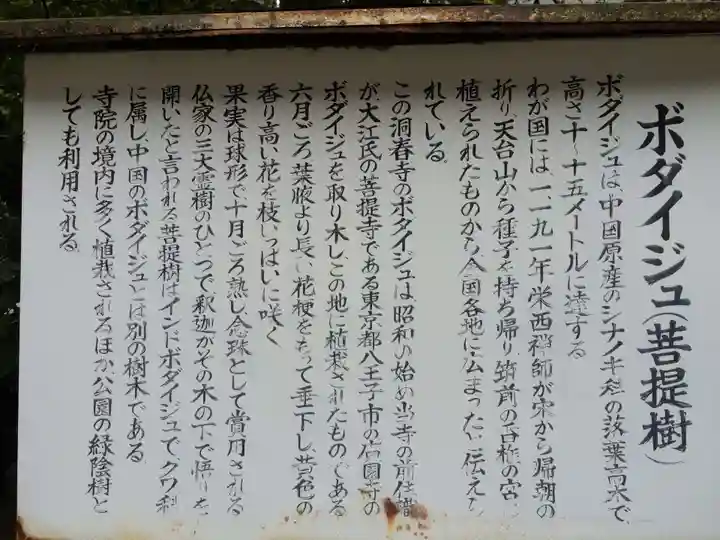 ボダイジュ(菩提樹)
ボダイジュは、中国原産のシナノキ科の落葉高木で
高さ十〜十五メートルに達する
わが国には、一一九一年栄西禅師が宋から帰朝の
折り、天台山から種子を持ち帰り筑前の香椎の宮に
植えられたものから全国各地に広まったと伝えら
れている。
この洞春寺のボダイジュは昭和の始め当寺の前住職
が、大江氏の菩提寺である東京都八王子市の信園寺の
ボダイジュを取り木し、この地に植栽されたものである
六月ごろ葉腋より長い花梗をもって垂下し、黄色の
香り高い花を枝いっぱいに咲く
果実は球形で十月ごろ熟し念珠として賞用される
仏家の三大霊樹のひとつで釈迦がその木の下で悟りを
開いたと言われる菩提樹はインドボダイジュで、クワ科
に属し、中国のボダイジュとは別の樹木である
寺院の境内に多く植栽されるほか公園の緑陰樹と
しても利用される